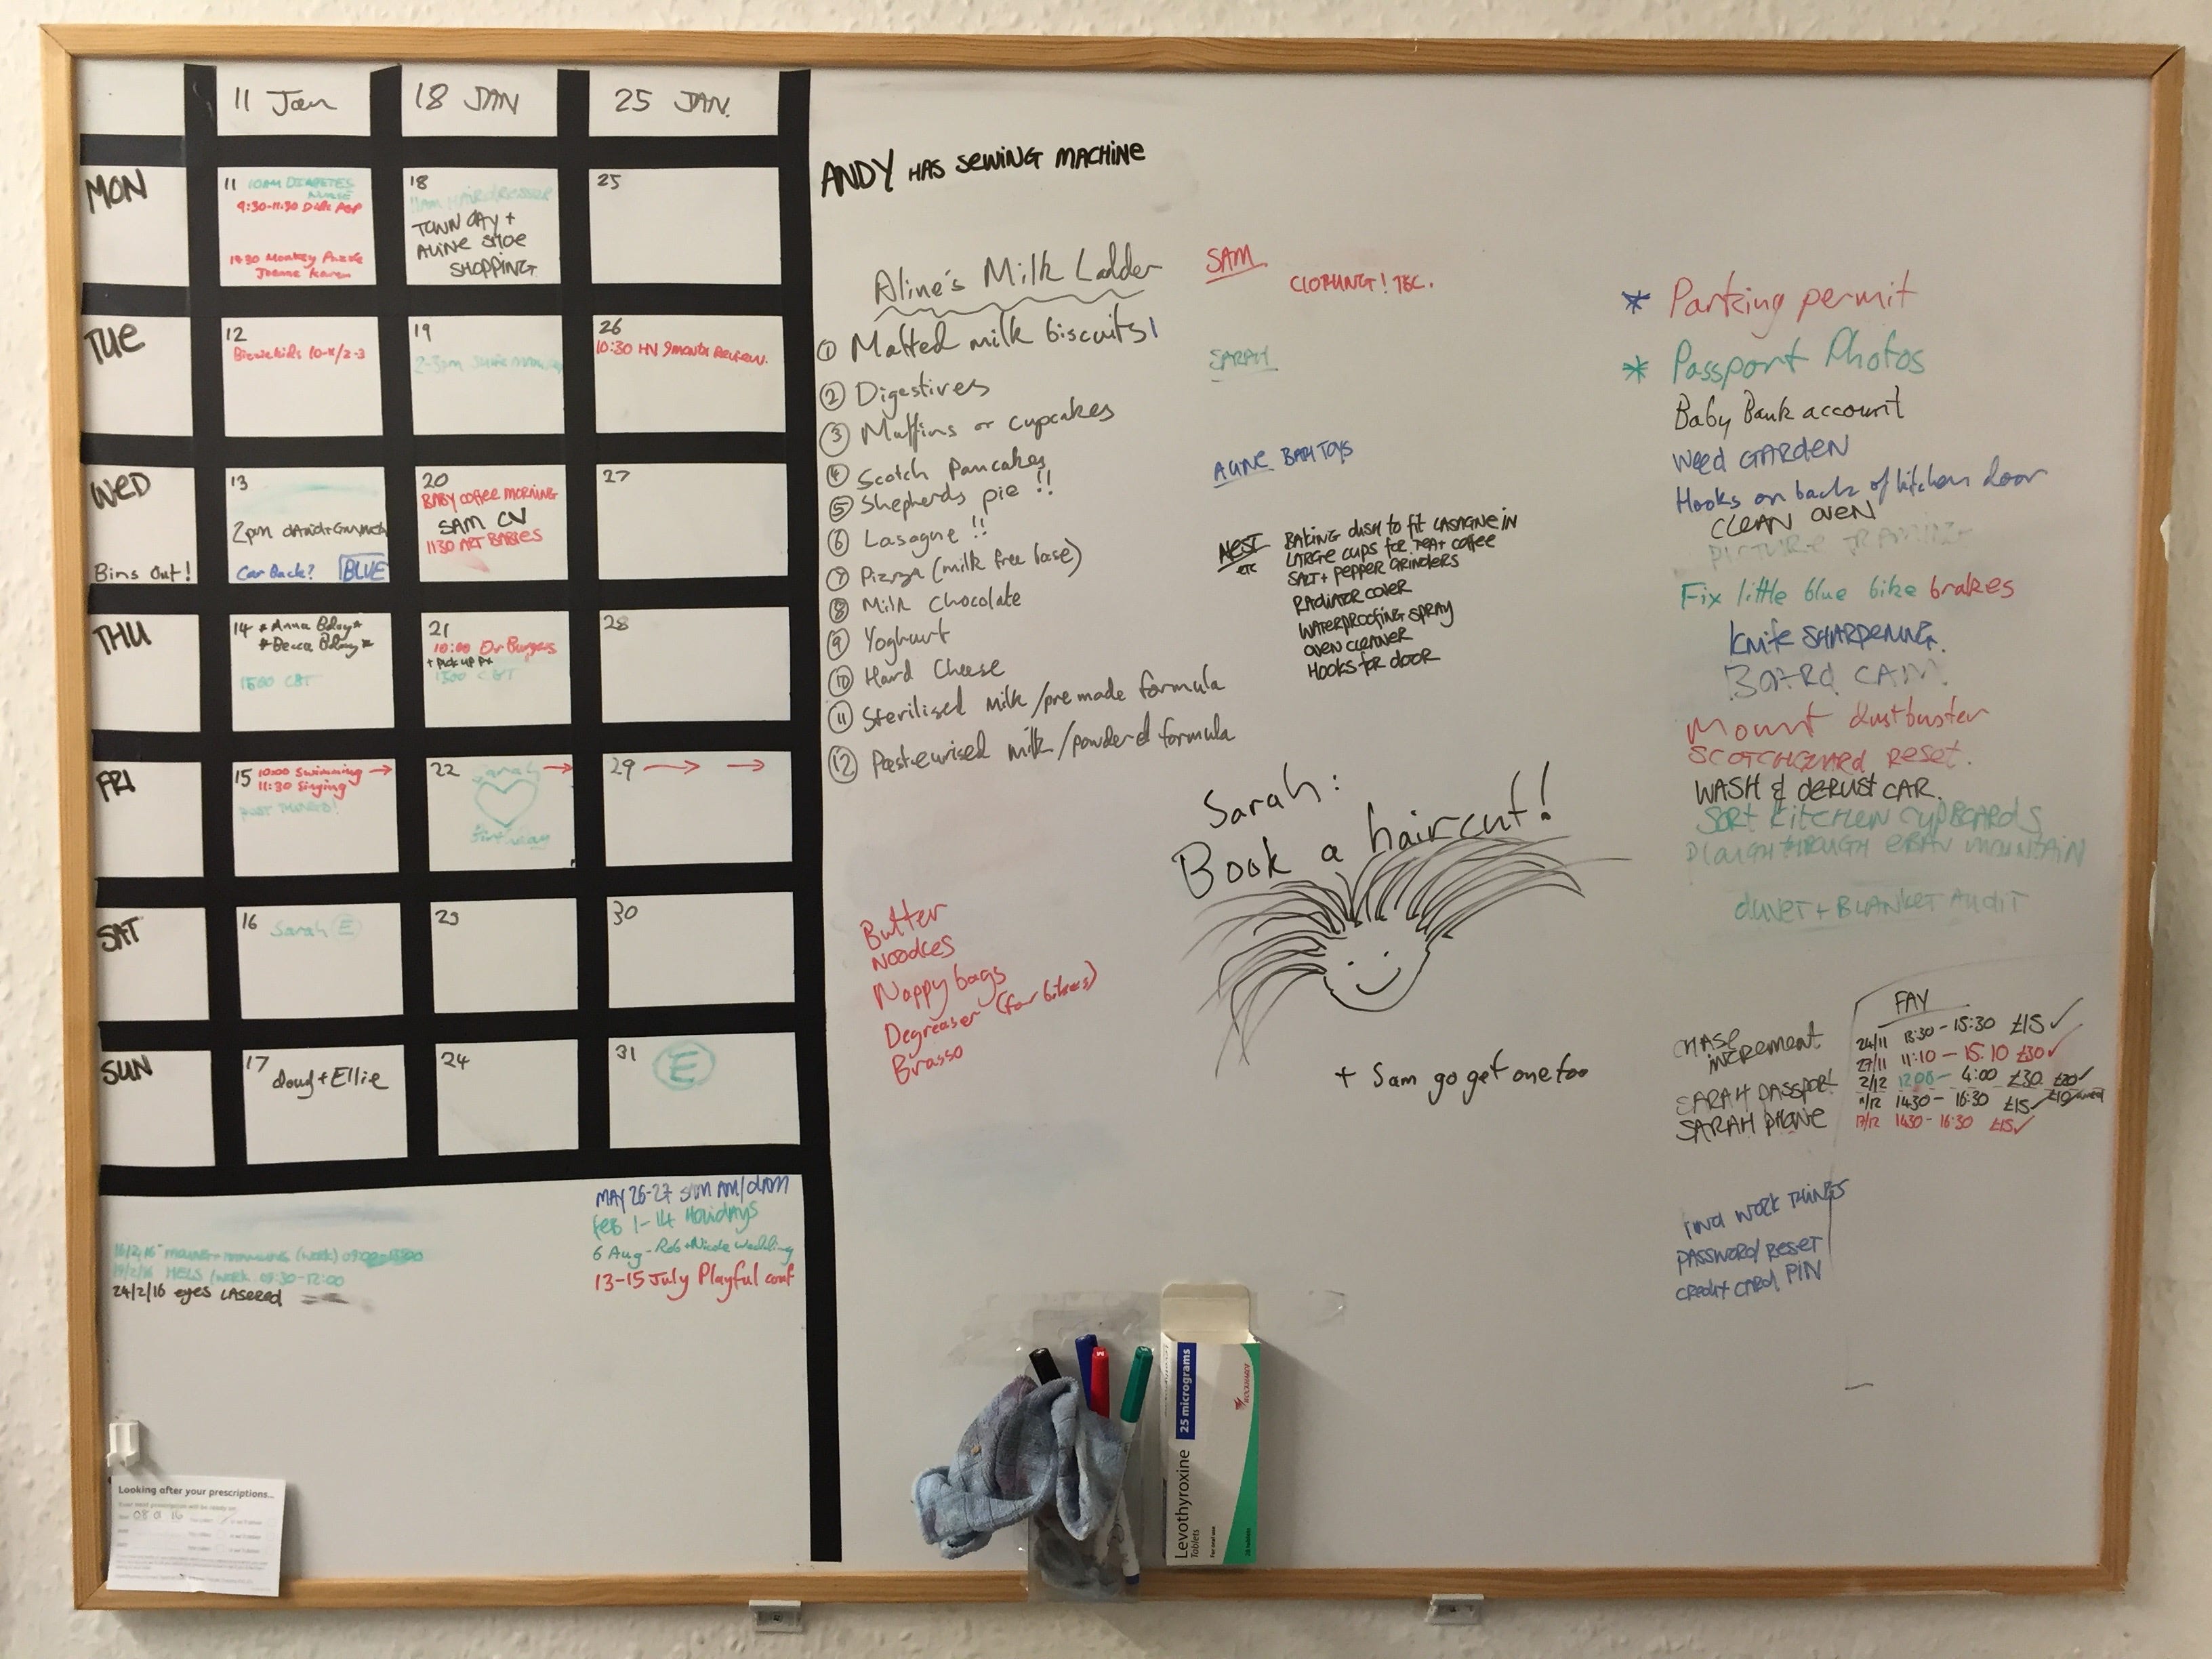 11 Jan
18 JAN
25 JAN.
MON
11 10AM DIABETES
NURSE
9:30-11:30
1430 Monkey Puzzle
Joanne Karen
18
11am HAIRdRESSER
TOWN DAY +
ALINE SHOE
SHOPPING
25
TUE
12
10-11/2-3
19
2-3pm
26
10:30 HV 9 month Review.
WED
Bins Out!
13
2pm
Car Back? BLUE
20
BABY COFFEE MORNING
SAM CV
1130 ART BABIES
27
THU
14 *Anna Bday*
*Becca Bday*
1500 CBT
21
10:00 Dr Burgess
+ pick up Px
1500 CBT
28
FRI
15 10:00 Swimming →
11:30 Singing
POST
22 Sarah →
birthday
29 → →
SAT
16 Sarah E
23
30
SUN
17 doug + Ellie
24
31 E
MAY 26-27
Feb 1-14 Holidays
6 Aug - Rob + Nicole Wedding
13-15 July Playful conf
(work)
19/2/16 HELS /work 09:30-12:00
24/2/16 eyes LASERED
Looking after your prescriptions...
08 01 16
ANDY HAS SEWING MACHINE
Aline's Milk Ladder
① Malted milk biscuits
② Digestives
③ Muffins or cupcakes
④ Scotch Pancakes
⑤ Shepherds pie !!
⑥ Lasagne !!
⑦ Pizza (milk free base)
⑧ Milk Chocolate
⑨ Yoghurt
⑩ Hard Cheese
⑪ Sterilised milk /premade formula
⑫ Pasteurised milk /powderd formula
SAM
CLOTHING! TBC.
SARAH
ALINE BATH TOYS
NEST
etc
BAKING DISH to fit LASAGNE in
LARGE cups for TEA + coffee
SALT + PEPPER GRINDERS
RADIATOR COVER
WATERPROOFING SPRAY
OVEN CLEANER
HOOKS for DOOR
Butter
Noodles
Nappy bags
Degreaser (for bikes)
Brasso
Sarah:
Book a haircut!
+ Sam go get one too
* Parking permit
* Passport Photos
Baby Bank account
Weed GARDEN
Hooks on back of kitchen door
CLEAN OVEN
PICTURE FRAMING
Fix little blue bike brakes
Knife SHARPENING.
BOARD CAM
Mount dustbuster
SCOTCHGUARD RESET.
WASH & DERUST CAR.
SORT KITCHEN CUPBOARDS
PLOUGH THROUGH EBAY MOUNTAIN
DUVET + BLANKET AUDIT
CHASE
INCREMENT
SARAH PASSPORT
SARAH PHONE
FAY
24/11 13:30 - 15:30 £15 ✓
27/11 11:10 - 15:10 £30 ✓
2/12 12:00 - 4:00 £30 £20 ✓
14:30 - 16:30 £15 ✓
17/12 1430 - 16:30 £15 ✓
FIND WORK THINGS
PASSWORD RESET
CREDIT CARD PIN
Levothyroxine
Tablets
25 micrograms
For oral use
28 tablets